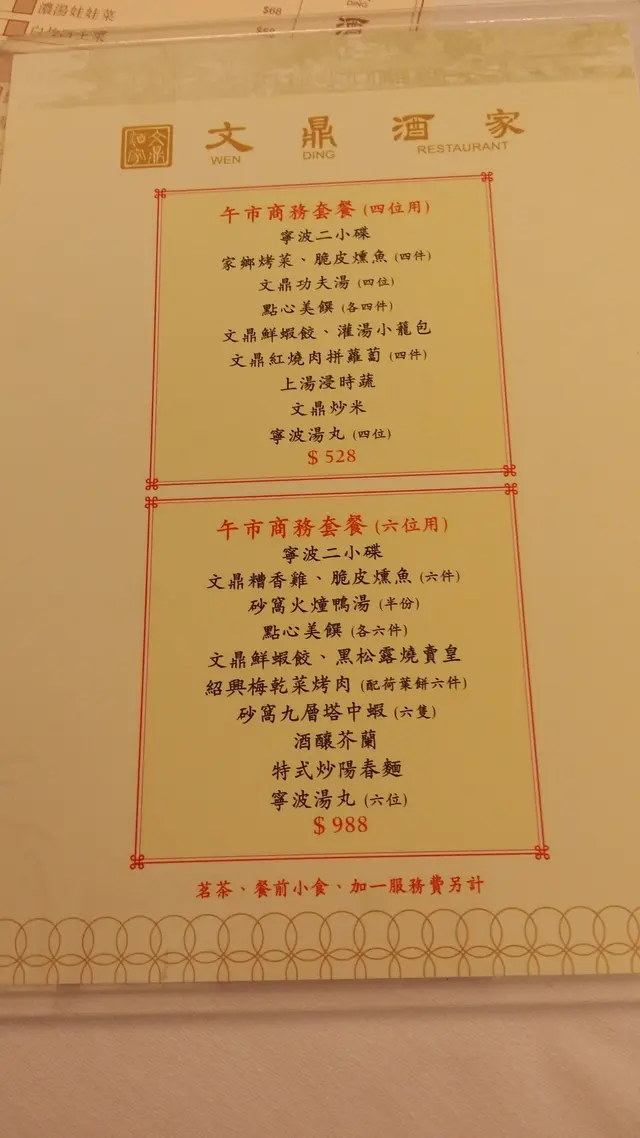 濃湯娃娃菜 $68
DING
文鼎酒家
WEN DING RESTAURANT
午市商務套餐(四位用)
寧波二小碟
家鄉烤菜、脆皮燻魚(四件)
文鼎功夫湯(四位)
點心美饌(各四件)
文鼎鮮蝦餃、灌湯小籠包
文鼎紅燒肉拼蘿蔔(四件)
上湯浸時蔬
文鼎炒米
寧波湯丸(四位)
$528
午市商務套餐(六位用)
寧波二小碟
文鼎糟香雞、脆皮燻魚(六件)
砂窩火煄鴨湯(半份)
點心美饌(各六件)
文鼎鮮蝦餃、黑松露燒賣皇
紹興梅乾菜烤肉(配荷葉餅六件)
砂窩九層塔中蝦(六隻)
酒釀芥蘭
特式炒陽春麵
寧波湯丸(六位)
$988
茗茶、餐前小食、加一服務費另計